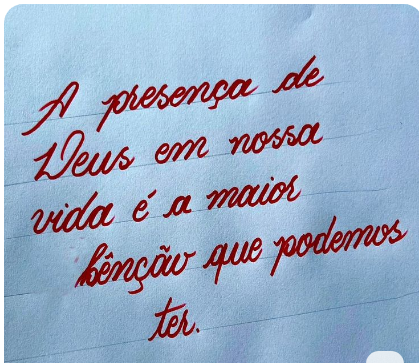 A presença de
Deus em nossa
vida é a maior
bênção que podemos
ter.